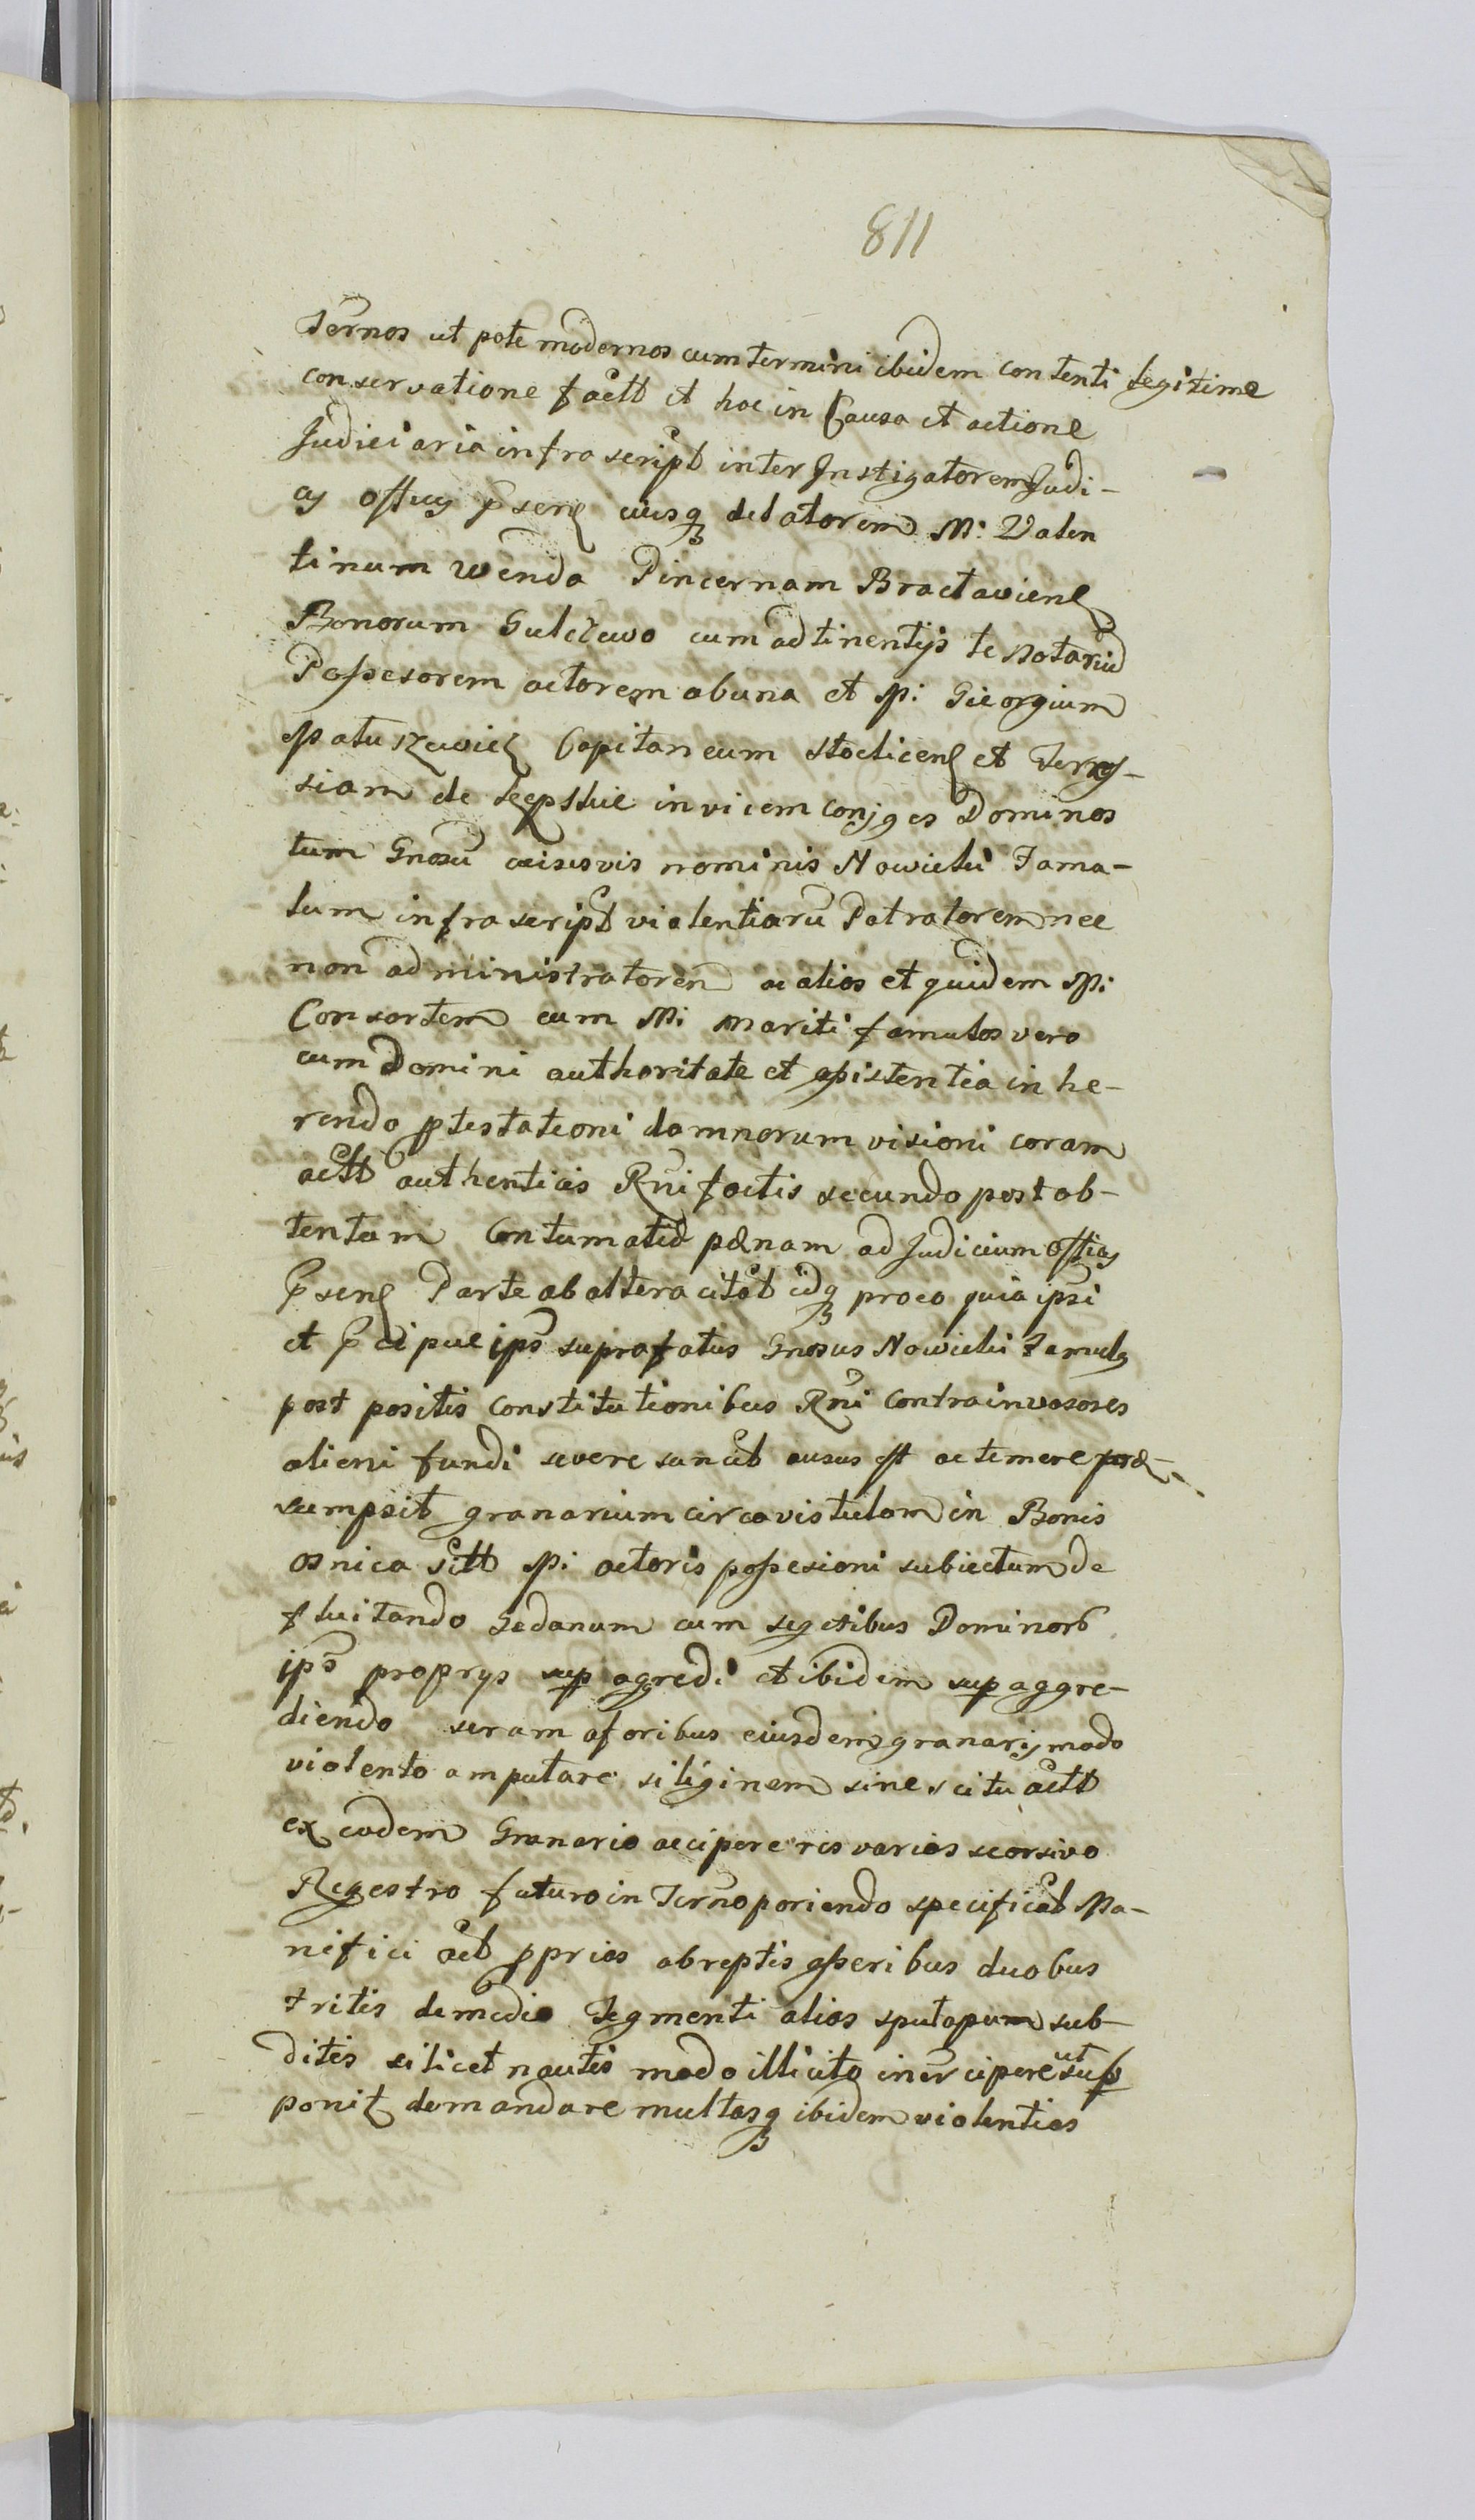 811
Termos ut pote modernos cum termini ibidem contenti legitime
conservatione factt et hac in Causa et actione
Judiciaria infra script inter Instigatorem Judi-
cy officy psen eiusq delatorem M: Valen
tinum Wenda Pincernam Braclavien
Bonorum Gulczewo cum adtinentijs
Possesorem actorem ab una et M: Georgium
Capitaneum et
siam de invicem Conjges Dominos
tum Gnosu cuiusvis nominis Nowicki Fama-
lum infra script violentiaru Patratorem nec
non administratorem ac alios et quidem M:
Consortem cum M: mariti famulos vero
cum Domini authoritate et assistentia in he-
rendo ptestationi damnorum visioni coram
actt authenticis Rni factis secundo post ob-
tentam Contumatiæ pænam ad Judicium officy
psen Parte ab altera citat idq pro eo quia ipsi
et pcipue ips suprafatus Gnosus Nowicki Famulg
post positis Constitutionibus Rni contra invasores
alieni fundi severe sancit ausus est ac temere præ-
sumpsit granarium circa vistulam in Bonis
osnica sitt M: actoris possesioni subiectum de
fluitando Gedanum cum segetibus Dominor
ips proprys sup agredi et ibidem sup aggre-
diendo seram a foribus eiusdem granarij modo
violento amputare siliginem sine scitu actt
ex eodem Granario accipere res varias seorsivo
Regestro futuro in Termo poriendo specificat Ma-
nifici act pprias abreptis asseribus duobus
tritis de medio Tegmenti alias sub-
ditis silicet nautis modo illicito intercipere ut sup
ponit demandare multasq ibidem violentias